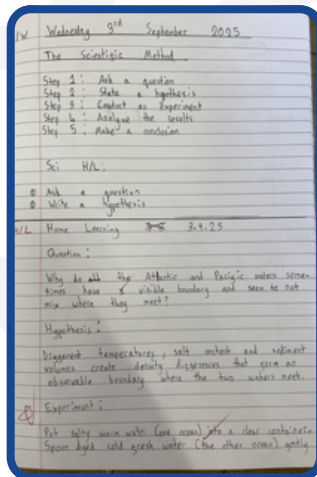 C/W Wednesday 3rd September 2025
The Scientific Method
Step 1: Ask a question
Step 2: State a hypothesis
Step 3: Conduct an Experiment
Step 4: Analyse the results
Step 5: Make a conclusion
Sci H/L:
① Ask a question
② Write a hypothesis
H/L Home Learning 3.9.25
Question:
Why do the Atlantic and Pacific waters some-
times have a visible boundary and seem to not
mix where they meet?
Hypothesis:
Different temperatures, salt content and sediment
volumes create density differences that form an
observable boundary where the two waters meet.
Experiment:
Put salty warm water (one ocean) into a clear container.
Spoon dyed cold fresh water (the other ocean) gently